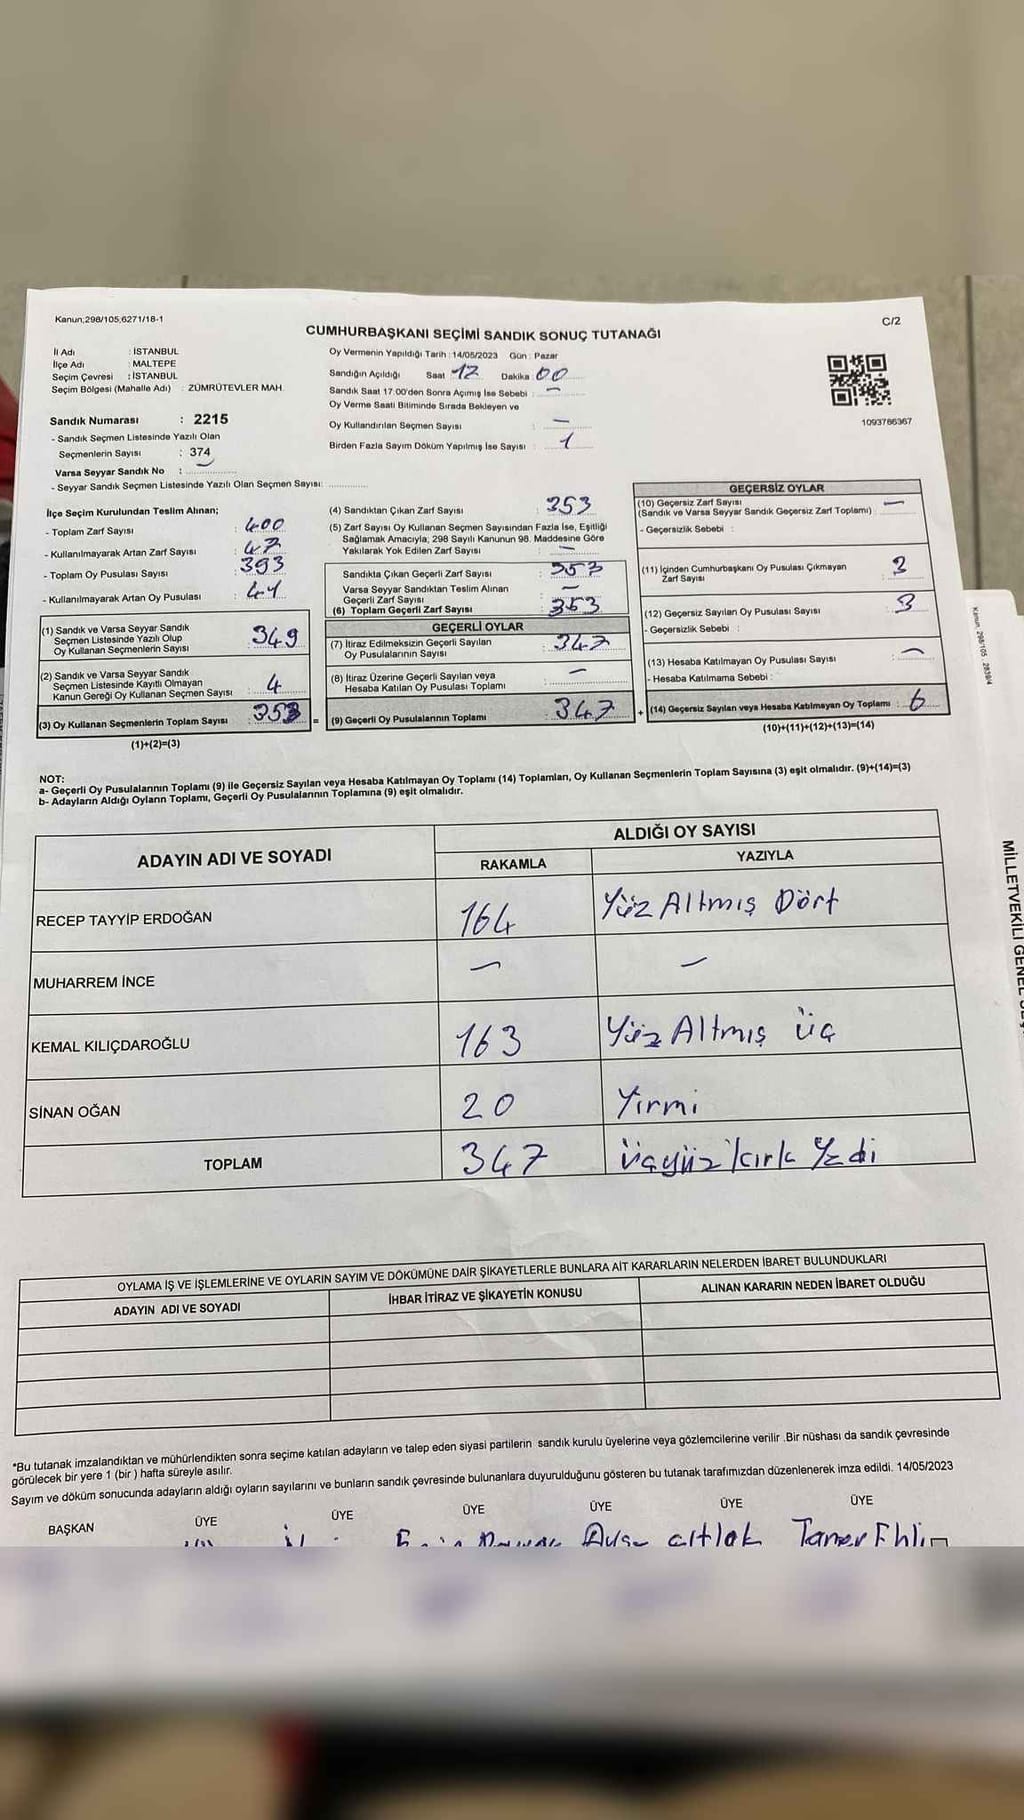 Kanun;298/105,6271/18-1
C/2
CUMHURBAŞKANI SEÇİMİ SANDIK SONUÇ TUTANAĞI
İl Adı : İSTANBUL
İlçe Adı : MALTEPE
Seçim Çevresi : İSTANBUL
Seçim Bölgesi (Mahalle Adı) : ZÜMRÜTEVLER MAH.
Sandık Numarası : 2215
- Sandık Seçmen Listesinde Yazılı Olan
Seçmenlerin Sayısı : 374
Varsa Seyyar Sandık No : –
- Seyyar Sandık Seçmen Listesinde Yazılı Olan Seçmen Sayısı:
Oy Vermenin Yapıldığı Tarih : 14/05/2023 Gün : Pazar
Sandığın Açıldığı Saat 17 Dakika 00
Sandık Saat 17.00'den Sonra Açımış İse Sebebi : –
Oy Verme Saati Bitiminde Sırada Bekleyen ve
Oy Kullandırılan Seçmen Sayısı : –
Birden Fazla Sayım Döküm Yapılmış İse Sayısı : 1
1093766367
İlçe Seçim Kurulundan Teslim Alınan;
- Toplam Zarf Sayısı : 400
- Kullanılmayarak Artan Zarf Sayısı : 47
- Toplam Oy Pusulası Sayısı : 393
- Kullanılmayarak Artan Oy Pusulası : 41
(1) Sandık ve Varsa Seyyar Sandık
Seçmen Listesinde Yazılı Olup
Oy Kullanan Seçmenlerin Sayısı : 349
(2) Sandık ve Varsa Seyyar Sandık
Seçmen Listesinde Kayıtlı Olmayan
Kanun Gereği Oy Kullanan Seçmen Sayısı : 4
(3) Oy Kullanan Seçmenlerin Toplam Sayısı : 353 =
(1)+(2)=(3)
(4) Sandıktan Çıkan Zarf Sayısı : 353
(5) Zarf Sayısı Oy Kullanan Seçmen Sayısından Fazla İse, Eşitliği
Sağlamak Amacıyla; 298 Sayılı Kanunun 98. Maddesine Göre
Yakılarak Yok Edilen Zarf Sayısı : –
Sandıkta Çıkan Geçerli Zarf Sayısı : 353
Varsa Seyyar Sandıktan Teslim Alınan
Geçerli Zarf Sayısı : –
(6) Toplam Geçerli Zarf Sayısı : 353
GEÇERLİ OYLAR
(7) İtiraz Edilmeksizin Geçerli Sayılan
Oy Pusulalarının Sayısı : 347
(8) İtiraz Üzerine Geçerli Sayılan veya
Hesaba Katılan Oy Pusulası Toplamı : –
(9) Geçerli Oy Pusulalarının Toplamı : 347 +
GEÇERSİZ OYLAR
(10) Geçersiz Zarf Sayısı
(Sandık ve Varsa Seyyar Sandık Geçersiz Zarf Toplamı) : –
- Geçersizlik Sebebi :
(11) İçinden Cumhurbaşkanı Oy Pusulası Çıkmayan
Zarf Sayısı : 3
(12) Geçersiz Sayılan Oy Pusulası Sayısı : 3
- Geçersizlik Sebebi :
(13) Hesaba Katılmayan Oy Pusulası Sayısı : –
- Hesaba Katılmama Sebebi :
(14) Geçersiz Sayılan veya Hesaba Katılmayan Oy Toplamı : 6
(10)+(11)+(12)+(13)=(14)
NOT:
a- Geçerli Oy Pusulalarının Toplamı (9) ile Geçersiz Sayılan veya Hesaba Katılmayan Oy Toplamı (14) Toplamları, Oy Kullanan Seçmenlerin Toplam Sayısına (3) eşit olmalıdır. (9)+(14)=(3)
b- Adayların Aldığı Oyların Toplamı, Geçerli Oy Pusulalarının Toplamına (9) eşit olmalıdır.
ADAYIN ADI VE SOYADI
ALDIĞI OY SAYISI
RAKAMLA YAZIYLA
RECEP TAYYİP ERDOĞAN 164 Yüz Altmış Dört
MUHARREM İNCE – –
KEMAL KILIÇDAROĞLU 163 Yüz Altmış üç
SİNAN OĞAN 20 Yirmi
TOPLAM 347 üçyüz kırk Yedi
OYLAMA İŞ VE İŞLEMLERİNE VE OYLARIN SAYIM VE DÖKÜMÜNE DAİR ŞİKAYETLERLE BUNLARA AİT KARARLARIN NELERDEN İBARET BULUNDUKLARI
ADAYIN ADI VE SOYADI İHBAR İTİRAZ VE ŞİKAYETİN KONUSU ALINAN KARARIN NEDEN İBARET OLDUĞU
*Bu tutanak imzalandıktan ve mühürlendikten sonra seçime katılan adayların ve talep eden siyasi partilerin sandık kurulu üyelerine veya gözlemcilerine verilir .Bir nüshası da sandık çevresinde
görülecek bir yere 1 (bir ) hafta süreyle asılır.
Sayım ve döküm sonucunda adayların aldığı oyların sayılarını ve bunların sandık çevresinde bulunanlara duyurulduğunu gösteren bu tutanak tarafımızdan düzenlenerek imza edildi. 14/05/2023
BAŞKAN ÜYE ÜYE ÜYE ÜYE ÜYE ÜYE
Taner Ehli
Kanun; 298/105